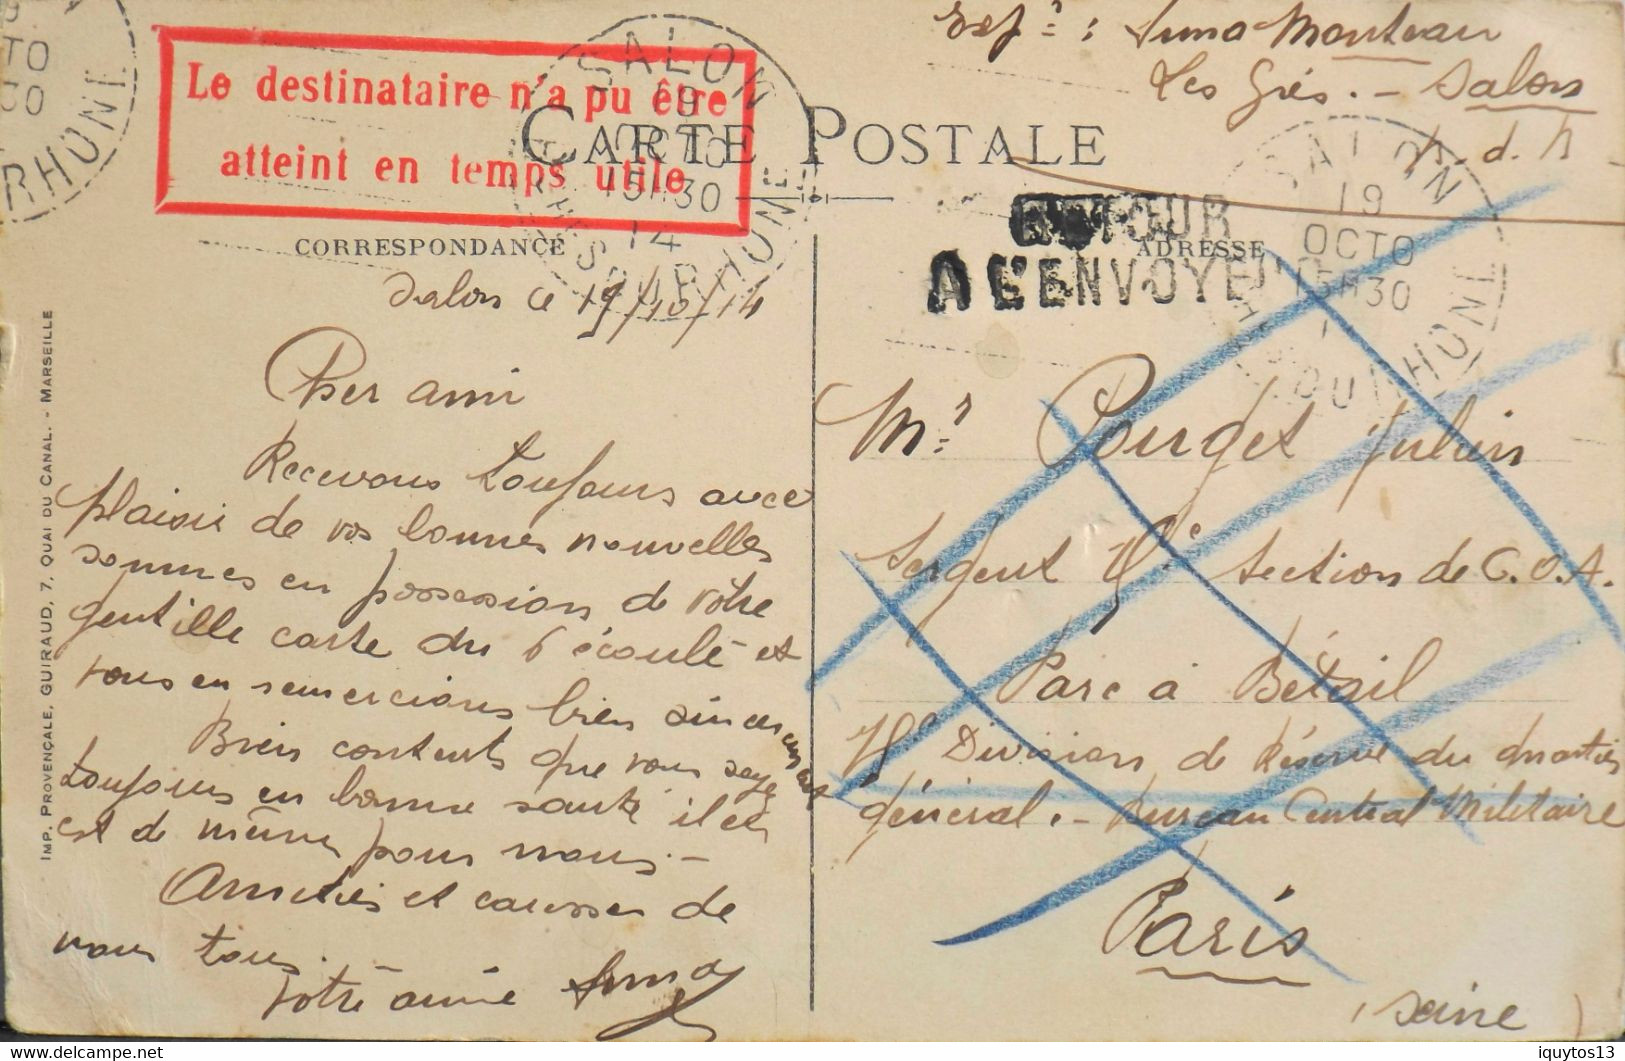 Le destinataire n'a pu être
atteint en temps utile
SALON
19
OCTO
15H30
14
BCHES DU RHONE
CARTE POSTALE
CORRESPONDANCE
ADRESSE
Salon
Les Grès. - Salon
RETOUR
A L'ENVOYEUR
SALON
19
OCTO
15H30
DU RHONE
TO
30
RHONE
IMP. PROVENÇALE, GUIRAUD, 7, QUAI DU CANAL. - MARSEILLE
Salon ce 19/10/14
Cher ami
Recevons toujours avec
plaisir de vos bonnes nouvelles
sommes en possession de votre
gentille carte du 6 écoulé et
vous en remercions bien sincèrement
Bien contents que vous soyez
toujours en bonne santé il en
est de même pour nous. -
Amitiés et caresses de
nous tous.
Votre amie Anna
Mr Pouget Julien
Sergent 15e Section de C.O.A.
Parc à Bétail
Division de Réserve du quartier
général. - Bureau Central Militaire
Paris
(Seine)
iquytos13